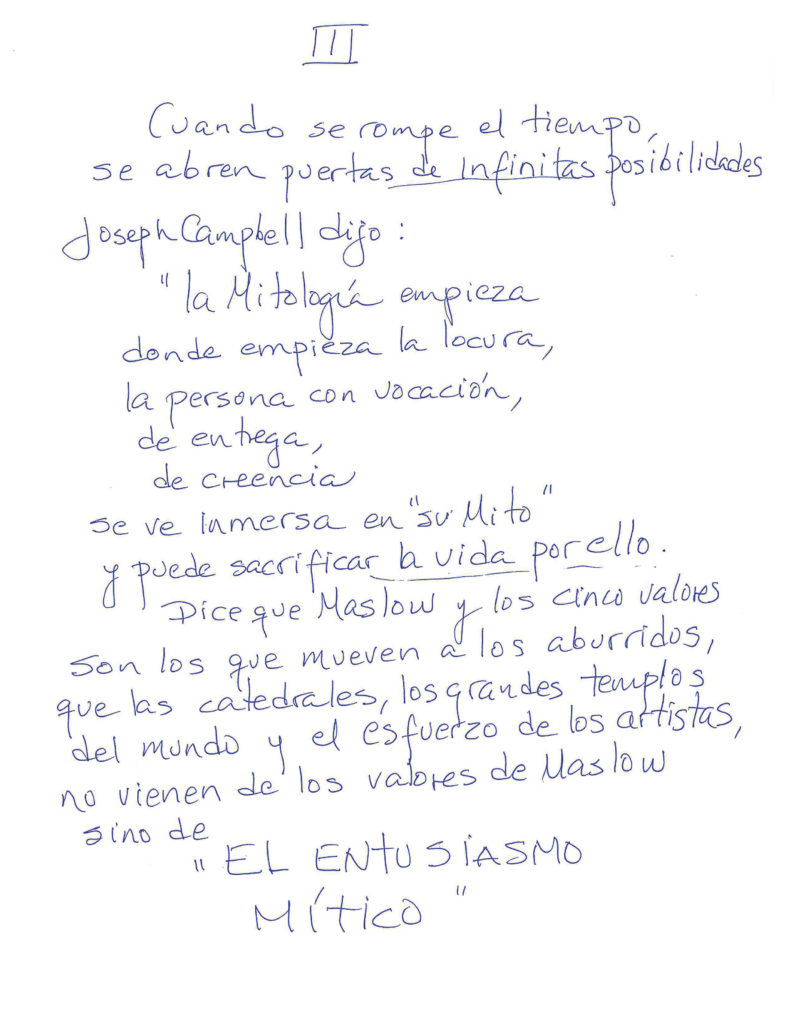 III
Cuando se rompe el tiempo,
se abren puertas de infinitas posibilidades
Joseph Campbell dijo:
"la Mitología empieza
donde empieza la locura,
la persona con vocación,
de entrega,
de creencia
se ve inmersa en "su Mito"
y puede sacrificar la vida por ello.
Dice que Maslow y los cinco valores
son los que mueven a los aburridos,
que las catedrales, los grandes templos
del mundo y el esfuerzo de los artistas,
no vienen de los valores de Maslow
sino de
"EL ENTUSIASMO
MÍTICO"